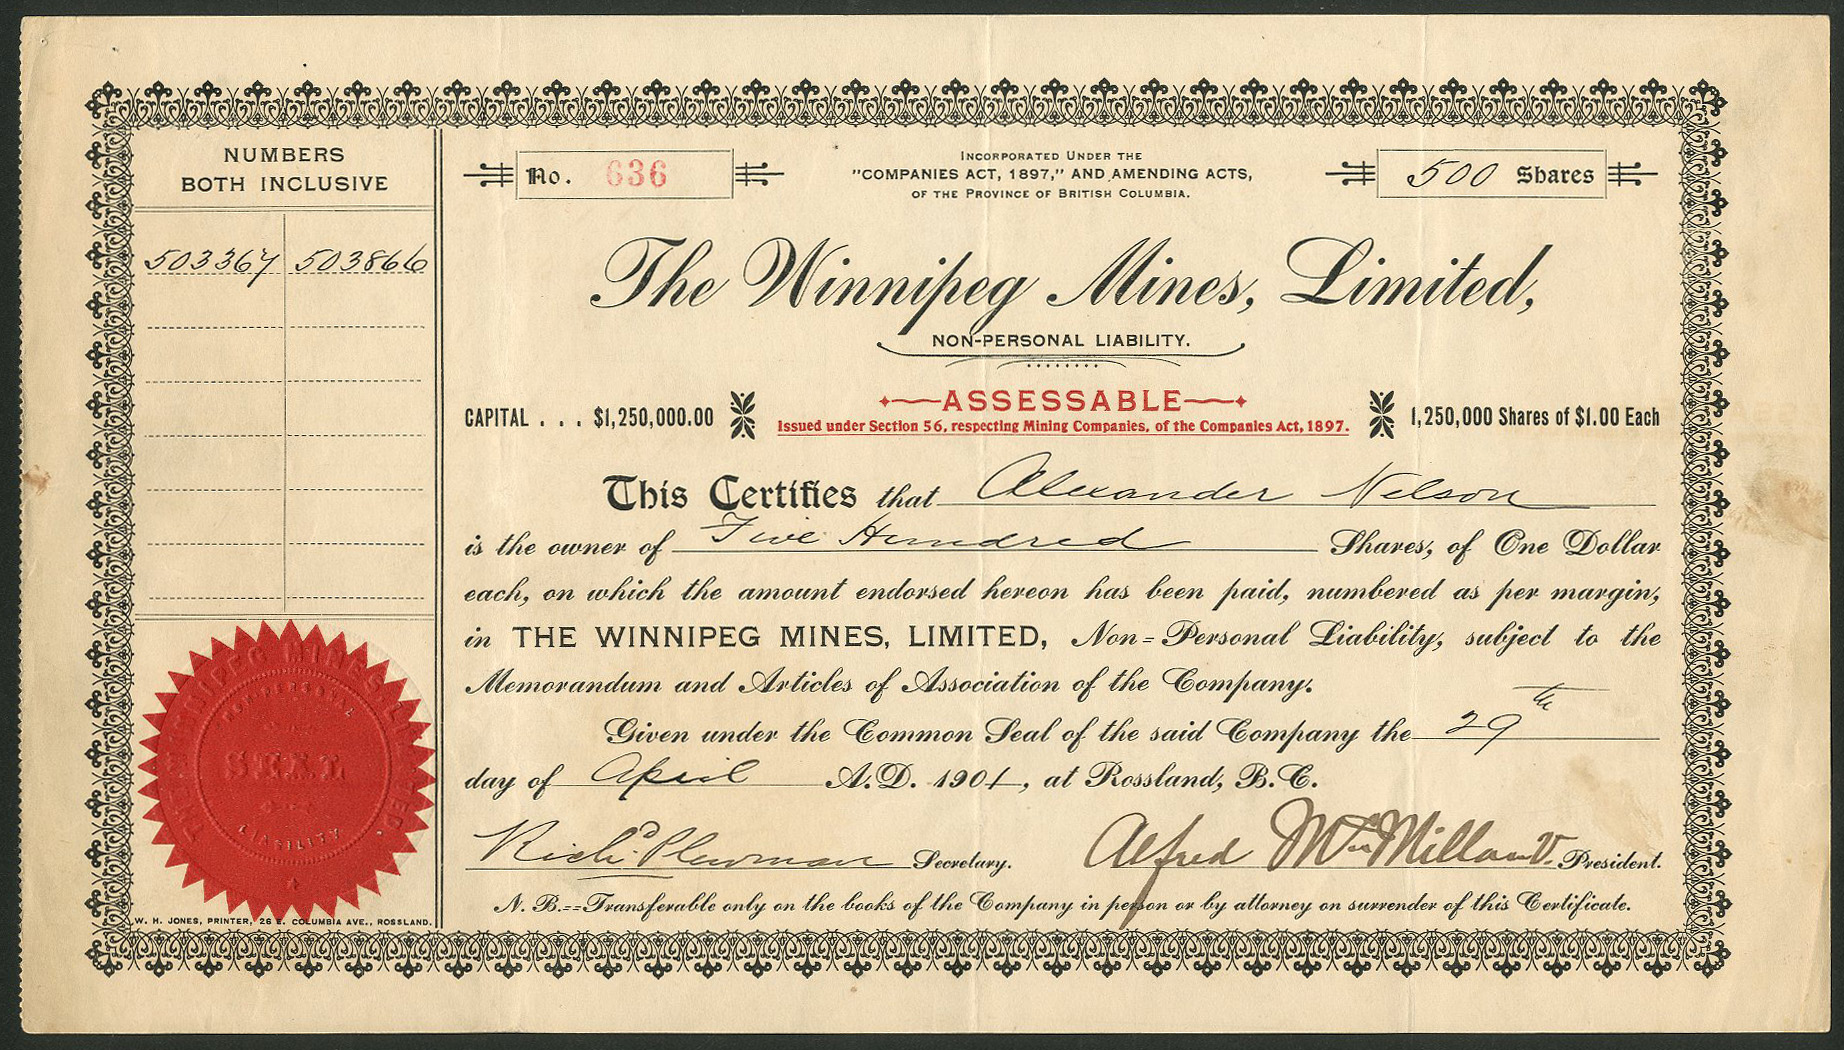 NUMBERS
BOTH INCLUSIVE
503367 503866
No. 636
INCORPORATED UNDER THE
"COMPANIES ACT, 1897," AND AMENDING ACTS,
OF THE PROVINCE OF BRITISH COLUMBIA.
500 Shares
The Winnipeg Mines, Limited,
NON-PERSONAL LIABILITY.
CAPITAL . . . $1,250,000.00
ASSESSABLE
Issued under Section 56, respecting Mining Companies, of the Companies Act, 1897.
1,250,000 Shares of $1.00 Each
This Certifies that Alexander Nelson
is the owner of Five Hundred Shares, of One Dollar
each, on which the amount endorsed hereon has been paid, numbered as per margin,
in THE WINNIPEG MINES, LIMITED, Non=Personal Liability, subject to the
Memorandum and Articles of Association of the Company.
Given under the Common Seal of the said Company the 29th
day of April A.D. 1901, at Rossland, B.C.
Richd Plewman Secretary.
Alfred McMillan V. President.
N. B.==Transferable only on the books of the Company in person or by attorney on surrender of this Certificate.
THE WINNIPEG MINES LIMITED.
NON-PERSONAL
SEAL
LIABILITY
W. H. JONES, PRINTER, 26 E. COLUMBIA AVE., ROSSLAND.